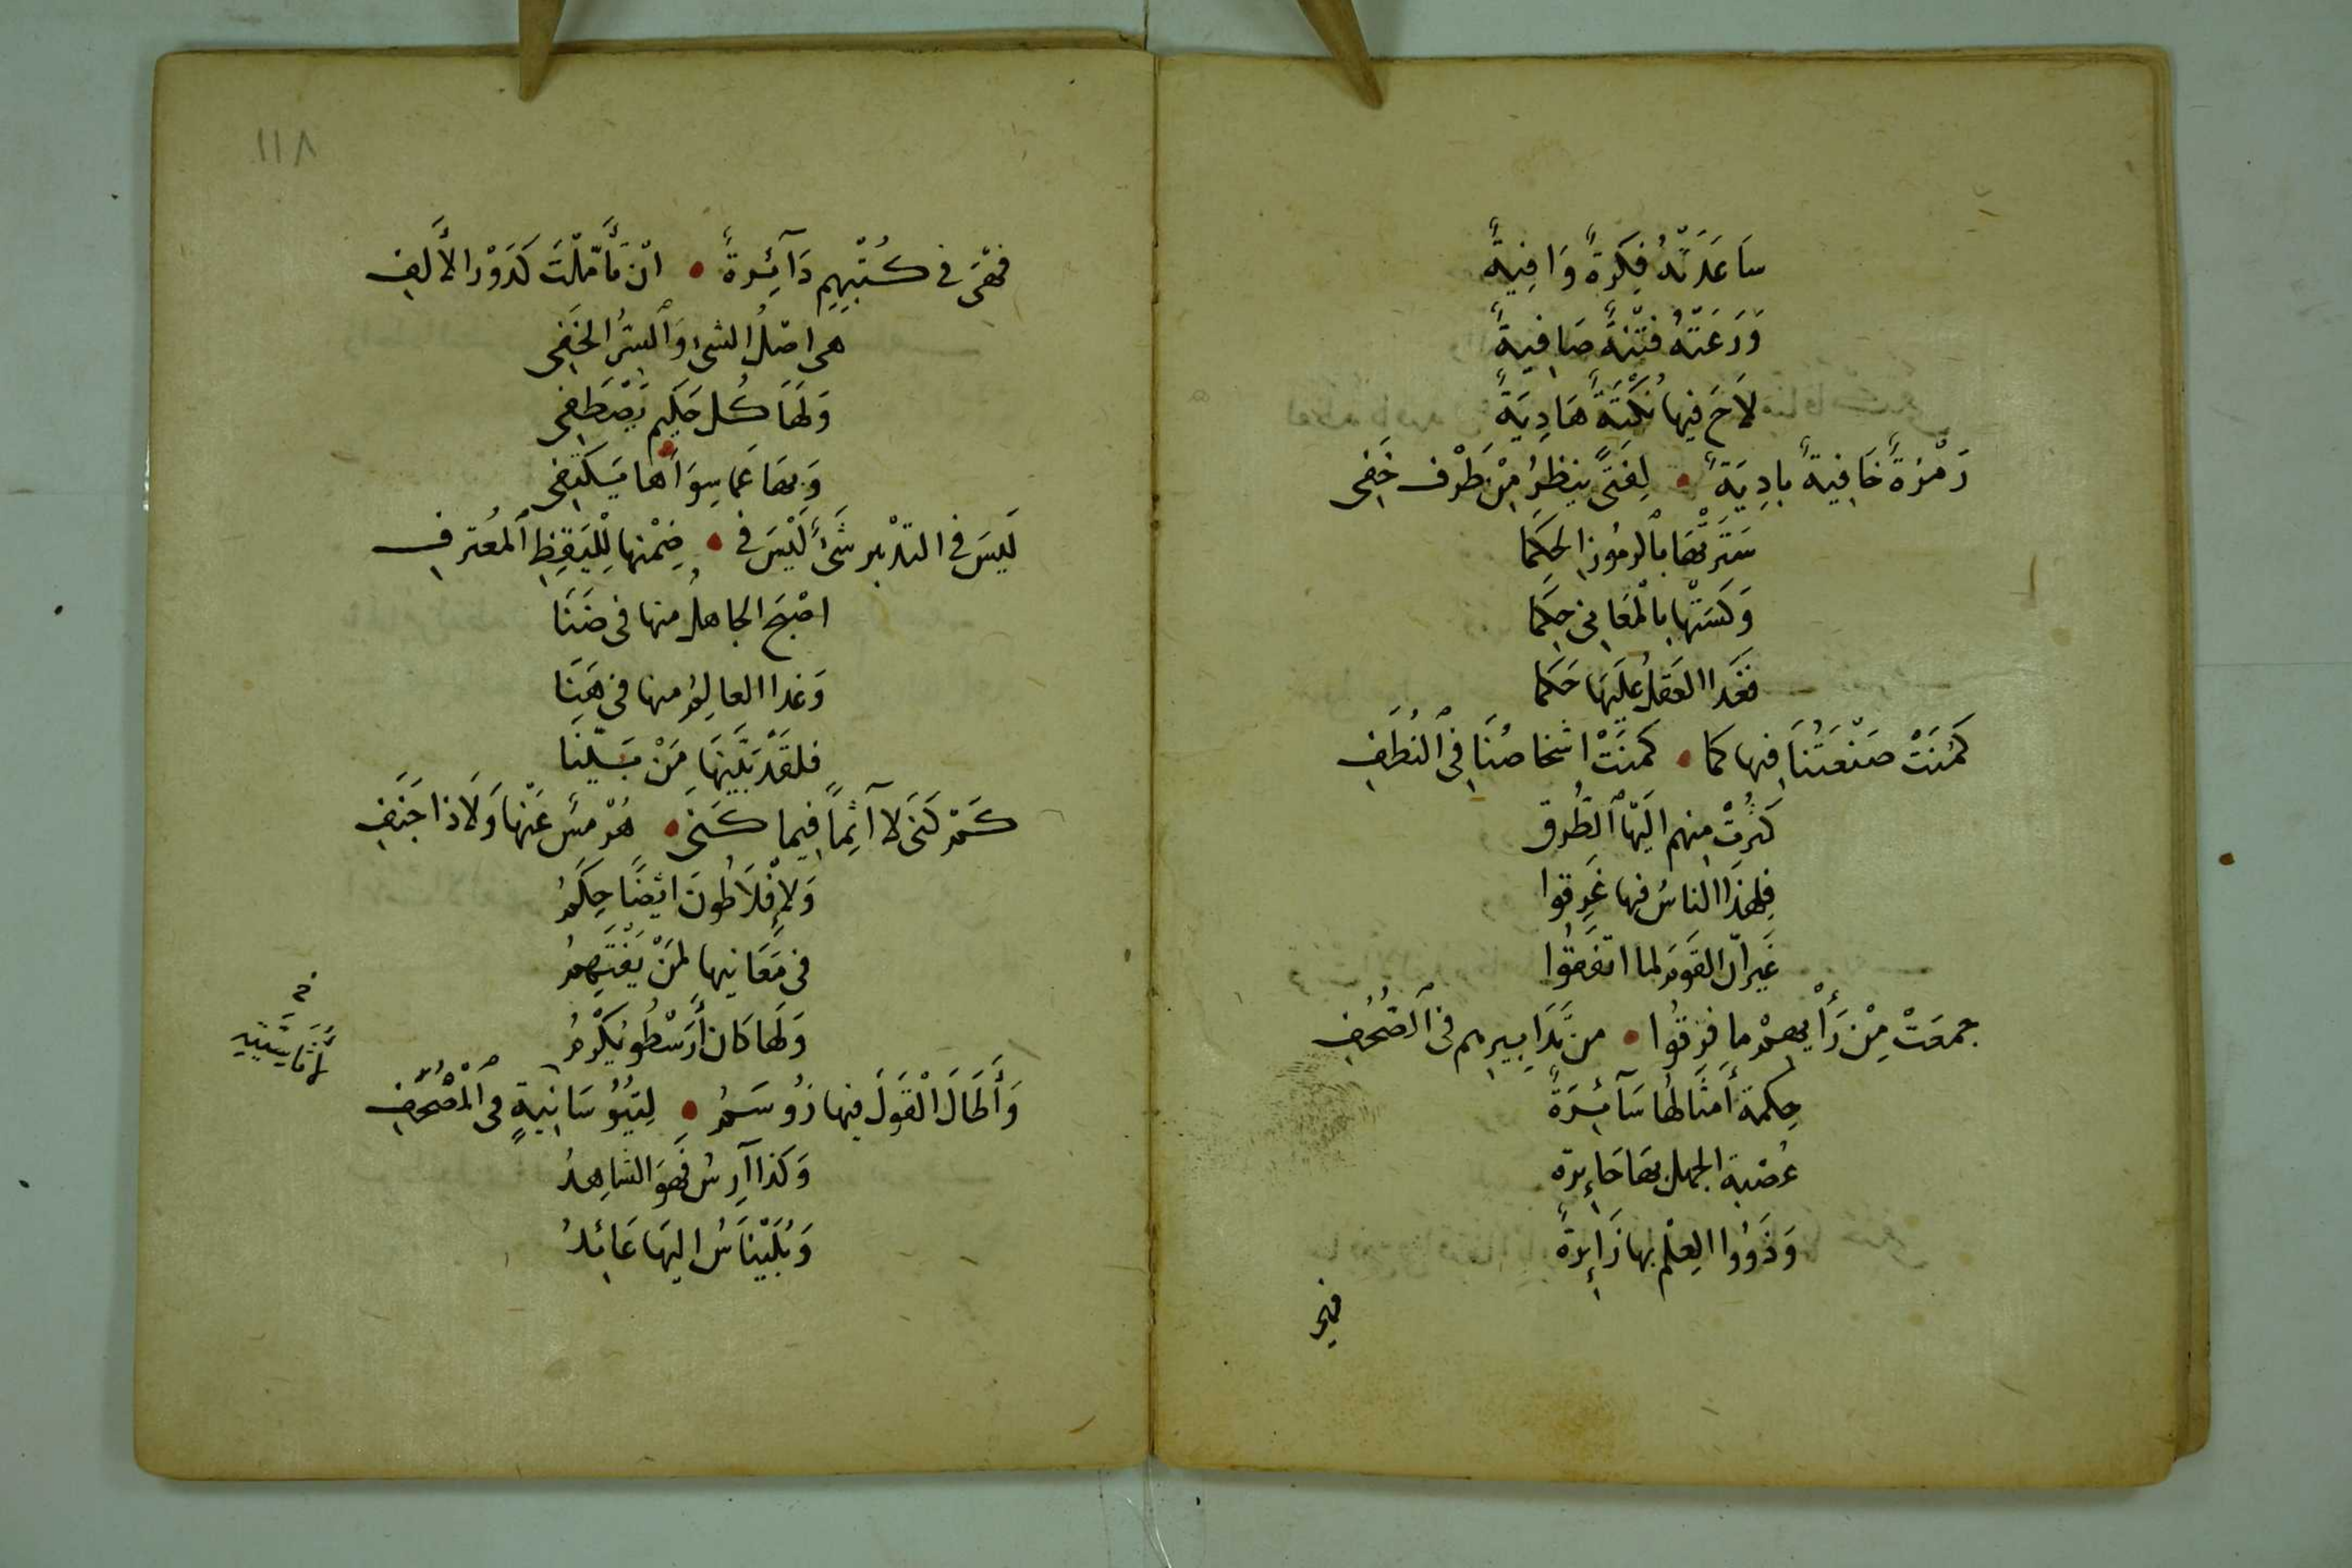 سَاعَدَتْهُ فِكْرَةٌ وَافِيَةٌ
وَرَعَتْهُ فِتْنَةٌ صَافِيَةٌ
لَاحَ فيها نُكْتَةٌ هَادِيَةٌ
رَمْزَةٌ خَافِيَةٌ بادِيَةٌ • لِفَتًى ينظرُ مِنْ طَرْفٍ خَفِى
سَتَرَتْهَا بالرموز الحُكَمَا
وَكَسَتْهَا بالمْعَانى حِكَمَا
فَغَدا العَقْلُ عَلَيْهَا حَكَمَا
كَمُنَتْ صَنْعَتُنَا فيها كما • كَمُنَتْ اشخاصُنَا فِى ٱلنُطَفِ
كَثُرَتْ منهم اليْهَا ٱلطُرق
فلِهَذَا الناسُ فيها غَرِقوا
غَيْرَ انّ القَوْمَ لما اتفَقُوا
جمعَتْ مِنْ رَأْيِهِمْ ما فرقُوا • من تَدَابيرهم فى ٱلصُّحُفِ
حِكمة أَمثَالهُا سَآئِرَةٌ
عُصْبَة الجهل بهَا حَائِرة
وَذَوُوا العِلْم بها زَائِرَةٌ
فهى
١١٨
فَهْىَ فى كُتْبِهِم دَآئِرةٌ • انْ تَأَمّلْتَ كَدَوْر الأَلِفِ
هى اصْلُ الشئ وَٱلسِرُّ الخَفِى
وَلَهَا كُل حَكِيم يَصْطَفِى
وَبهَا عَما سِوَاهَا يَكتفِى
لَيسَ فى التدْبير شَىْءٌ لَيْسَ فى • ضِمْنها لِلْيَقِظِ ٱلمُعْترفِ
اصْبَحَ الجاهلُ منها فى ضَنَا
وَغدا العالِمُ منها فى هَنَا
فلقَدْ بَيَّنَهَا مَنْ بَيَّنَا
كَمْ كَنَى لا آثِمًا فِيما كَنَى • هُرْمُسٌ عَنْهَا وَلَا ذا جَنَفِ
وَلإِفْلَاطُونَ ايْضًا حِكَمُ
فى مَعَانِيها لمَنْ يَفْتَهِمُ
وَلَهَا كَان أَرَسْطُو يَكْرُمُ
وَأَطَالَ ٱلْقَوْلَ فيها زُوسَمُ • لِثِيُوُسَانِيةٍ فى ٱلْمُصْحَفِ
وَكذا آرِسُ فَهُوَ الشاهِدُ
وَبُلَيْنَاسُ اليهَا عَائِدُ
خ